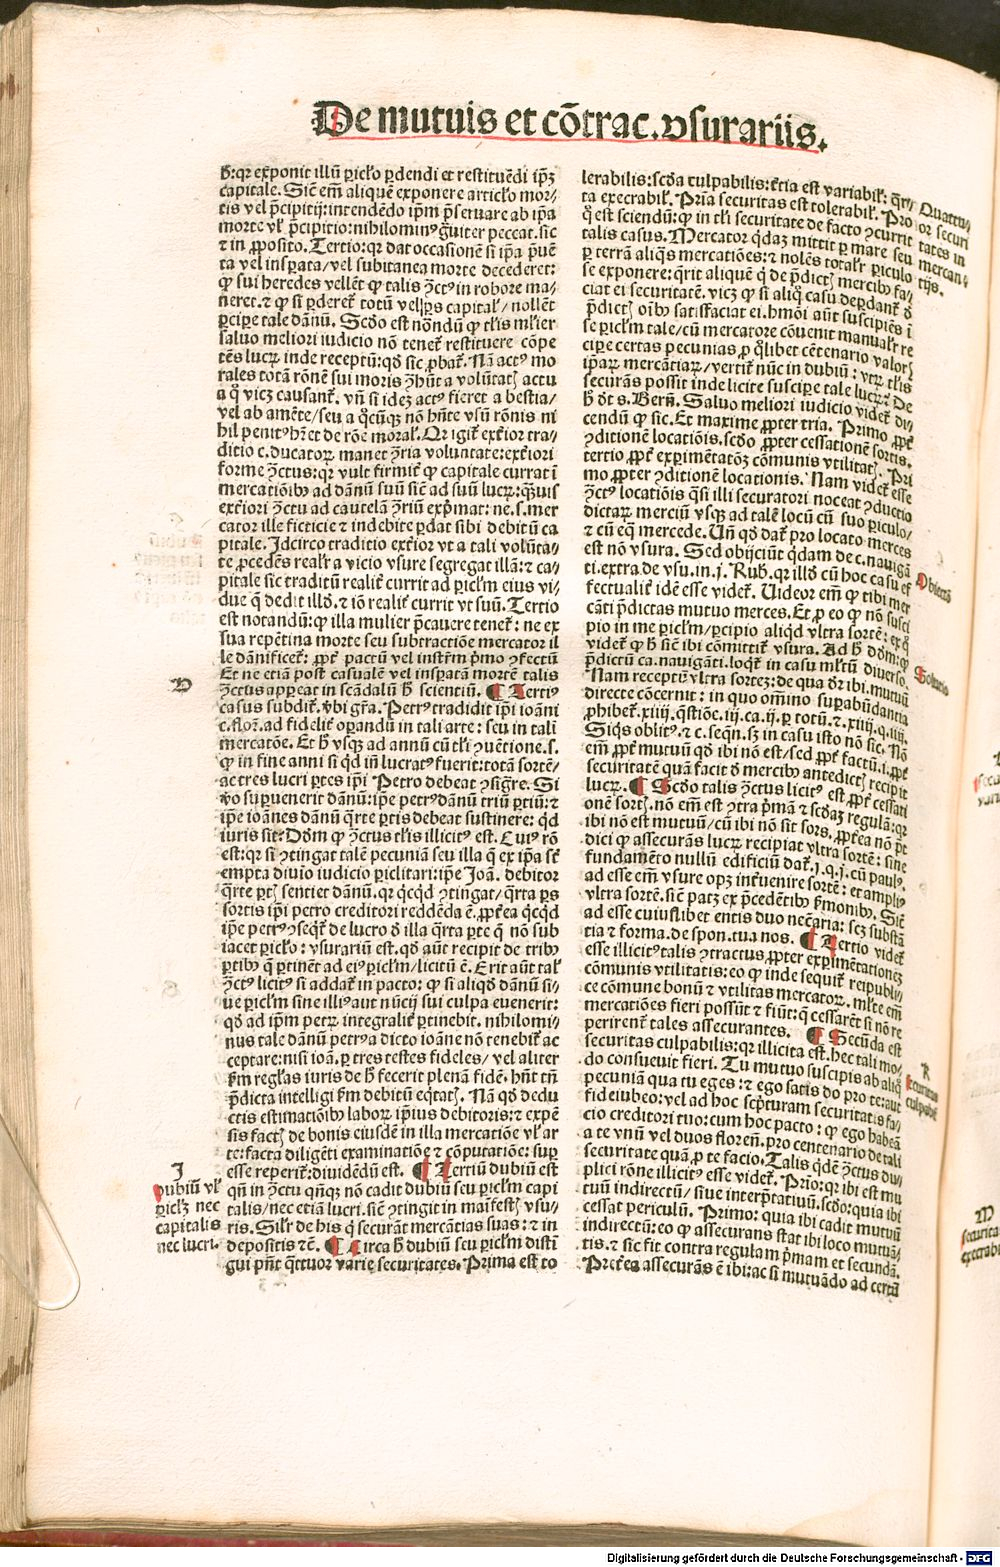 De mutuis et cōtrac. vsurariis.
ħ: qr exponit illū ꝑicl'o ꝑdendi et restituēdi ip̄ꝫ
capitale. Sicut em̄ aliquē exponere articl'o mor-
tis vel p̄cipitij: intendēdo ip̄m p̄seruare ab ip̄a
morte vl' p̄cipitio: nihilominꝰ grauiter peccat. sic
⁊ in ꝓposito. Tertio: qr dat occasionē si ip̄a p̄uē
ta vel insꝑata/ vel subitanea morte decederet:
ꝙ sui heredes vellēt ꝙ talis ꝯctꝰ in robore ma-
neret. ⁊ ꝙ si ꝑderet totū vel pars capital'/ nollēt
ꝑcipe tale dānū. Scdo est nōndū ꝙ tl'is ml'ier
saluo meliori iudicio nō tenet restituere cōpe
tēs lucrum inde receptū: qd sic ꝓbat. Nā actꝰ mo
rales totā rōnē sui moris ꝯhūt a volūtatis actu
a q̄ vicꝫ causant. vn̄ si idē actꝰ fieret a bestia/
vel ab amēte/ seu a q̄cūqꝫ nō hn̄te vsū rōnis ni
hil penitꝰ hꝫet de rōe moral'. Qr igit exterior tra-
ditio c. ducatorum manet ꝯria voluntate: exteriori
forme ꝯctus: qr vult firmit ꝙ capitale currat ī
mercatiōibꝰ ad dānū suū sic ad suū lucrum: quis
exteriori ꝯctu ad cautelā ꝯriū exp̄mat: ne .s. mer
cator ille ficticie ⁊ indebite ꝑdat sibi debitū ca
pitale. Idcirco traditio exterior vt a tali volūta-
te ꝓcedēs realr a vicio vsure segregat illā: ⁊ ca-
pitale sic traditū realit currit ad ꝑicl'm eius vi-
due q̄ dedit illd. ⁊ iō realit currit vt suū. Tertio
est notandū: ꝙ illa mulier p̄cauere tenet: ne ex
sua repentina morte seu subtractiōe mercator il
le dānificet: ꝓpt pactū vel instrm̄ p̄mo ꝯfectū
Et ne etiā post casualē vel insꝑatā mortē talis
ꝯctus appareat in scādalū ħ scientiū. ¶ Tertiꝰ
casus subdit. vbi gr̄a. Petrꝰ tradidit ip̄i ioāni
c. flor. ad fidelit oꝑandū in tali arte: seu in tali
mercatōe. Et ħ vsqꝫ ad annū cū tl'i ꝯuentione .s.
ꝙ in fine anni si qd in lucratꝰ fuerit: totā sortē/
ac tres lucri ꝑtes ip̄i Petro debeat ꝯsigre. Si
vo suꝑuenerit dānū: ip̄e petrꝰ dānū triū ꝑtiū: ⁊
ip̄e ioānes dānū q̄rte ꝑtis debeat sustinere: qd
iuris sit: Dōm ꝙ ꝯctus tl'is illicitꝰ est. Cuiꝰ rō
est: qr si ꝯtingat talē pecuniā seu illa q̄ ex ip̄a sit
empta diuio iudicio ꝑiclitari: ip̄e Joā. debitor
q̄rte ꝑtis sentiet dānū. qr qcqd ꝯtingat/ q̄rta ꝑs
sortis ip̄i petro creditori reddēda ē. ꝓpterea qcqd
ip̄e petrꝰ ꝯseqt de lucro ꝺ illa q̄rta ꝑte q̄ nō sub
iacet ꝑicl'o: vsurariū est. qd aūt recipit de tribꝰ
ꝑtibꝰ q̄ ꝑtinēt ad eiꝰ ꝑicl'm/ licitū ē. Erit aūt tal'
ꝯctꝰ licitꝰ si addat in pacto: ꝙ si aliqd dānū si-
ue ꝑicl'm sine illiꝰ aut nūcij sui culpa euenerit:
qd ad ip̄m petrum integralit ꝑtinebit. nihilomi-
nus tale dānū petrꝰ a dicto ioāne nō tenebit ac
ceptare: nisi ioā. ꝑ tres testes fideles/ vel aliter
ẜm regl'as iuris de ħ fecerit plenā fidē. hn̄t tn̄
p̄dicta intelligi ẜm debitū eqtatis. Nā qd dedu
ctis estimatiōibꝰ laborum ip̄ius debitoris: ⁊ expē
sis factis de bonis eiusdē in illa mercatiōe vl' ar
te: facta diligēti examinatiōe ⁊ cōputatiōe: suꝑ
esse reperit: diuidēdū est. ¶ Tertiū dubiū est
qn̄ in ꝯctu qn̄qꝫ nō cadit dubiū seu ꝑicl'm capi
talis/ nec etiā lucri. sic ꝯtingit in maifestis vsu-
ris. Silr de his q̄ securāt mercātias suas: ⁊ in
depositis ⁊c̄. ¶ Circa ħ dubiū seu ꝑicl'm disti
gui pn̄t q̄ttuor varie securitates. Prima est to
D
J
Dubiū vl'
ꝑicl'ꝫ nec
capitalis
nec lucri.
lerabilis: scda culpabilis: tertia est variabil': quar
ta execrabil'. Prīa securitas est tolerabil'. Pro
q̄ est sciendū: ꝙ in tl'i securitate de facto ꝯcurrit
talis casus. Mercator qdaꝫ mittit ꝑ mare seu
ꝑ terrā aliq̄s mercatiōes: ⁊ nolēs totalr ꝑiculo
se exponere: q̄rit aliquē q̄ de p̄dictis mercibꝰ fa-
ciat ei securitatē. vicꝫ ꝙ si aliq̄ casu deꝑdant ꝺ
p̄dictis oībꝰ satisfaciat ei. hmōi aūt suscipiēs ī
se ꝑicl'm tale/ cū mercatore cōuenit manualr re
ciꝑe certas pecunias ꝓ qlibet cētenario valoris
ip̄arum mercātiarum/ vertit nūc in dubiū: vtrum tl'is
securās possit inde licite susciꝑe tale lucrum: De
ħ dt s. Bern̄. Saluo meliori iudicio videt di-
cendū ꝙ sic. Et maxime ꝓpter tria. Primo ꝓpt
ꝯditionē locatiōis. scdo ꝓpter cessationē sortis.
tertio ꝓpt exꝑimētatōꝫ cōmunis vtilitatis. Pri
mo ꝓpter ꝯditionē locationis. Nam videt esse
ꝯctꝰ locatiōis q̄si illi securatori noceat ꝯductio
dictarum merciū vsqꝫ ad talē locū cū suo ꝑiculo/
⁊ cū eq̄ mercede. Un̄ qd dat pro locato merces
est nō vsura. Sed obijciūt qdam de c. nauigā
ti. extra de vsu. in .j. Rub. qr illd cū hoc casu ef
fectualit idē esse videt. Uideor em̄ ꝙ tibi mer
cāti p̄dictas mutuo merces. Et ꝓ eo ꝙ nō susci
pio in me ꝑicl'm/ ꝑcipio aliqd vltra sortē: ex q̄
videt ꝙ ħ sic ibi cōmittit vsura. Ad ħ dōm: ꝙ
p̄dictū ca. nauigāti. loqt in casu ml'tū diuerso.
Nam receptū vltra sortez: de qua dr ibi. mutuū
directe cōcernit: in quo om̄ino suꝑabūdantia
ꝓhibet. xiiij. q̄stiōe. iij. ca. ij. ꝑ totū. ⁊. xiiij. q. iiij.
Siqs oblitꝰ. ⁊ c. seqn̄. sꝫ in casu isto nō sic. Nō
em̄ ꝓpt mutuū qd ibi nō est/ sed ꝓpt factū. i. ꝓpt
securitatē quā facit ꝺ mercibꝰ antedictis recipit
lucrum. ¶ Scdo talis ꝯctus licitꝰ est ꝓpt cessati
onē sortis. nō em̄ est ꝯtra p̄mā ⁊ scdaꝫ regulā: qr
ibi nō est mutuū/ cū ibi nō sit sors. ꝓpterea nō p̄t
dici ꝙ assecurās lucrum recipiat vltra sortē: sine
fundamēto nullū edificiū dat. j. q. j. cū paulꝰ.
ad esse em̄ vsure opꝫ inueniire sortē: et ampliꝰ
vltra sortē. sic patꝫ ex p̄cedētibꝰ sermonibꝰ. Sic
ad esse cuiuslibet entis duo necāria: scꝫ substā
tia ⁊ forma. de spon. tua nos. ¶ Tertio videt
esse illicitꝰ talis ꝯtractus ꝓpter exꝑimētationeꝫ
cōmunis vtilitatis: eo ꝙ inde sequit reipubli-
ce cōmune bonū ⁊ vtilitas mercatorum. ml'te em̄
mercatiōes fieri possūt ⁊ fiūt: q̄ cessarēt si nō re
perirent tales assecurantes. ¶ Secūda est
securitas culpabilis: qr illicita est. hec tali mo-
do consueuit fieri. Tu mutuo suscipis ab aliq̄
pecuniā qua tu eges: ⁊ ego satis do pro te: aut
fideiubeo: vel ad hoc scp̄turam securitatis fa-
cio creditori tuo: cum hoc pacto: ꝙ ego habeā
a te vnū vel duos florenos. pro centenario de tali
securitate quā ꝓ te facio. Talis qdē ꝯctus du-
plici rōne illicitꝰ esse videt. Prio: qr ibi est mu
tuū indirectū/ siue interp̄tatiuū. scdo: quia ibi
cessat periculū. Primo: quia ibi cadit mutuū
indirectū: eo ꝙ assecurans stat ibi loco mutuā-
tis. ⁊ sic fit contra regulam p̄mam et secundā.
Preterea assecurās ē ibi: ac si mutuādo ad certū
Quattu-
or securi
tates in
mercan-
tijs.
Obiectō
Solutio
K
Securitas
culpabil'
M